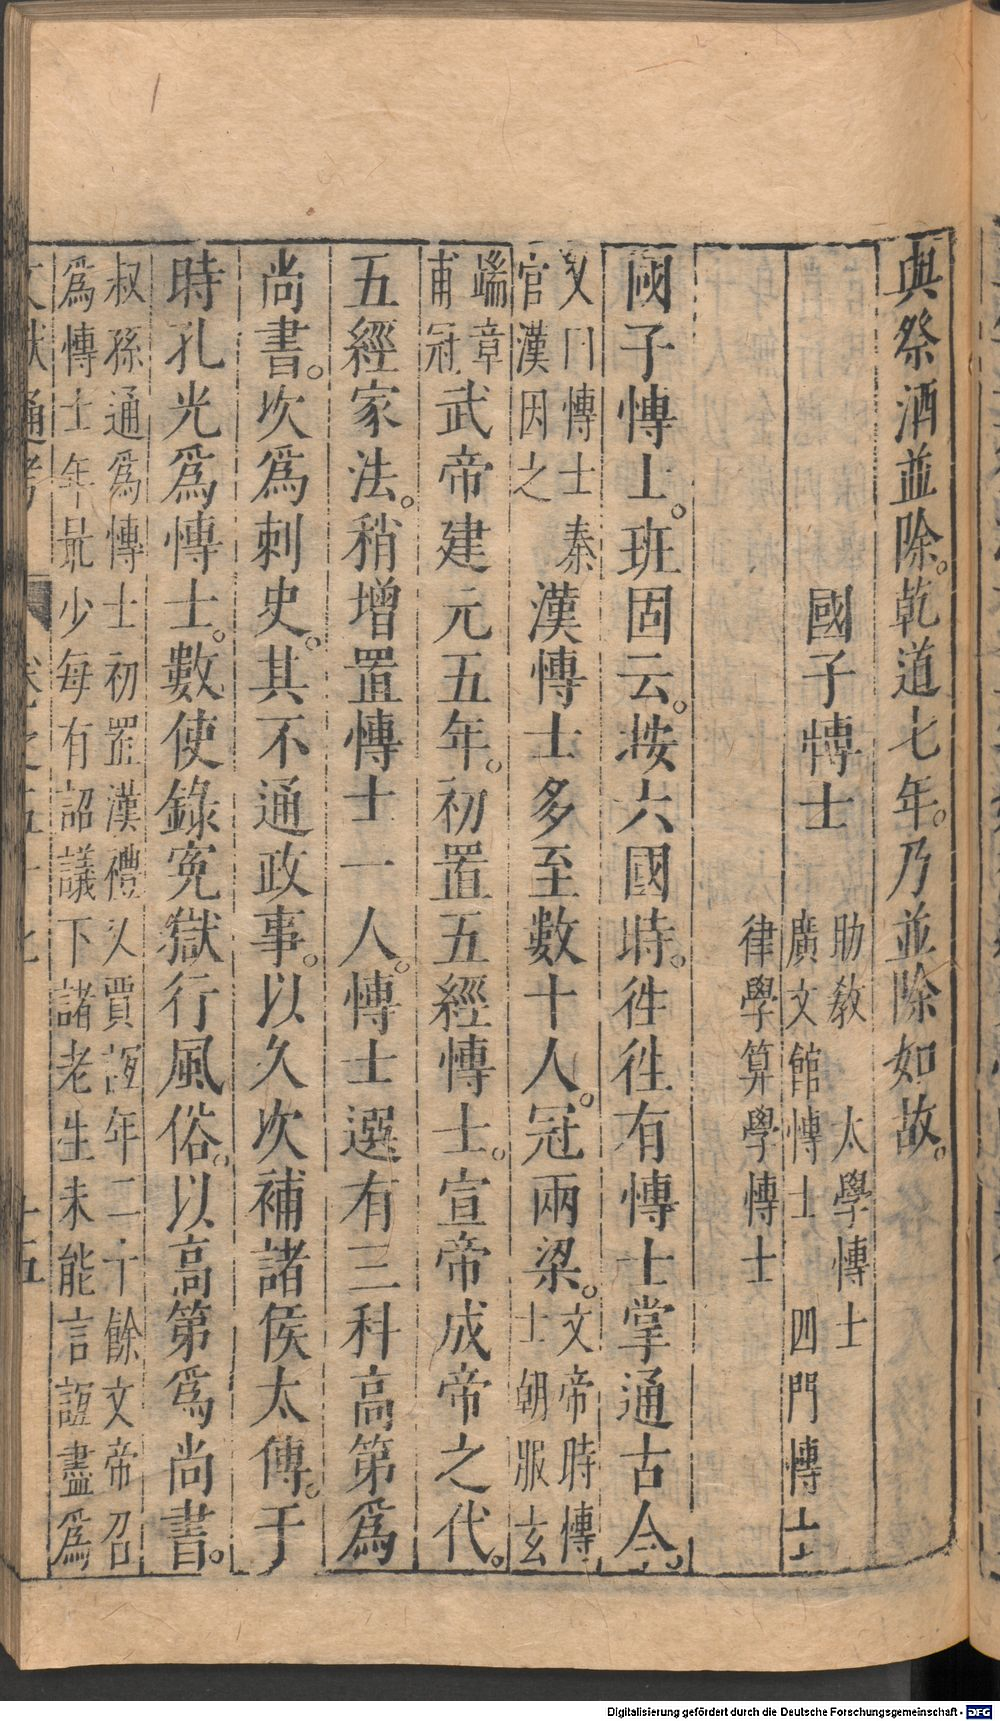 與祭酒並除。乾道七年。乃並除如故。
國子博士
助教　太學博士
廣文館博士　四門博士
律學算學博士
國子博士。班固云。按六國時。徃徃有博士掌通古今。
又曰博士秦
官漢因之
漢博士多至數十人。冠兩梁。
文帝時博
士朝服玄
端章
甫冠
武帝建元五年。初置五經博士。宣帝成帝之代。
五經家法。稍增置博士一人。博士選有三科高第爲
尚書。次爲刺史。其不通政事。以久次補諸侯太傅。于
時孔光爲博士。數使錄寃獄行風俗。以高第爲尚書。
叔孫通爲博士初罷漢禮又賈誼年二十餘文帝召
爲博士年最少每有詔議下諸老生未能言誼盡爲
文獻通考　卷之五十七　十五
Digitalisierung gefördert durch die Deutsche Forschungsgemeinschaft - DFG